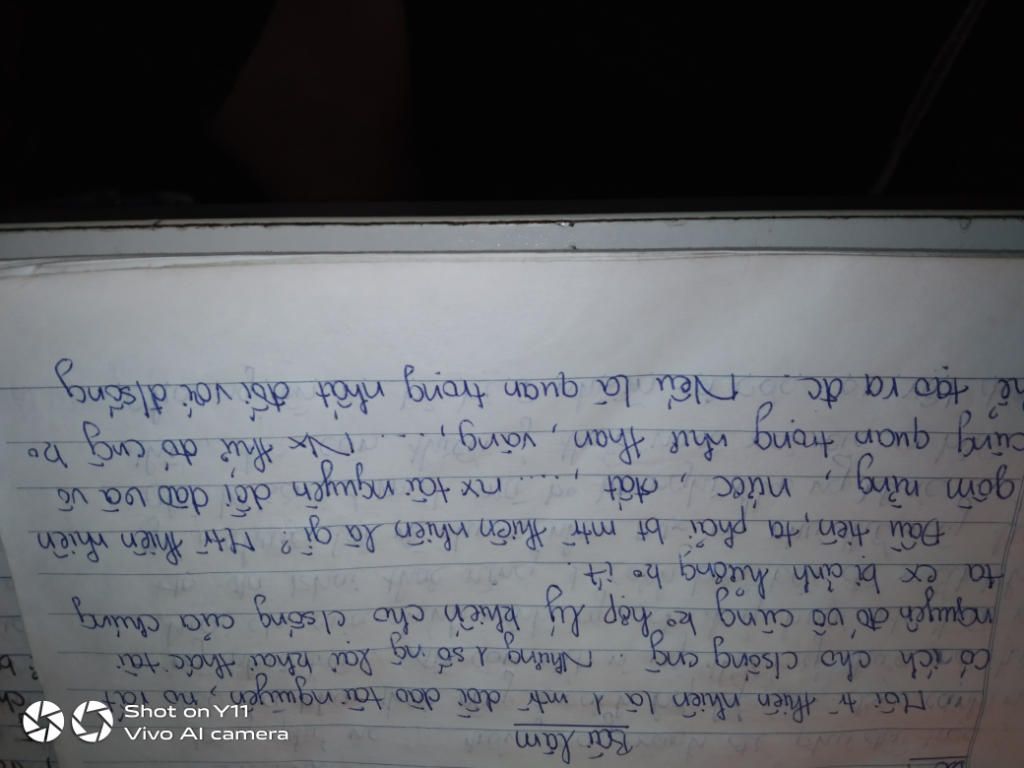 Bài làm
Môi tr thiên nhiên là 1 mtr dồi dào tài nguyên, nó rất
có ích cho c/sống cng. Nhưng 1 số ng lại khai thác tài
nguyên đó vô cùng ko hợp lý khiến cho c/sống của chúng
ta cx bị ảnh hưởng ko ít.
Đầu tiên, ta phải bt mtr thiên nhiên là gì? Mtr thiên nhiên
gồm nắng, nước, đất, .... nx tài nguyên dồi dào và vô
cùng quan trọng như than, vàng, .... Nx thứ đó cng ko
tạo ra đc. Nếu là quan trọng nhất đối với đ/sống
Shot on Y11
Vivo AI camera